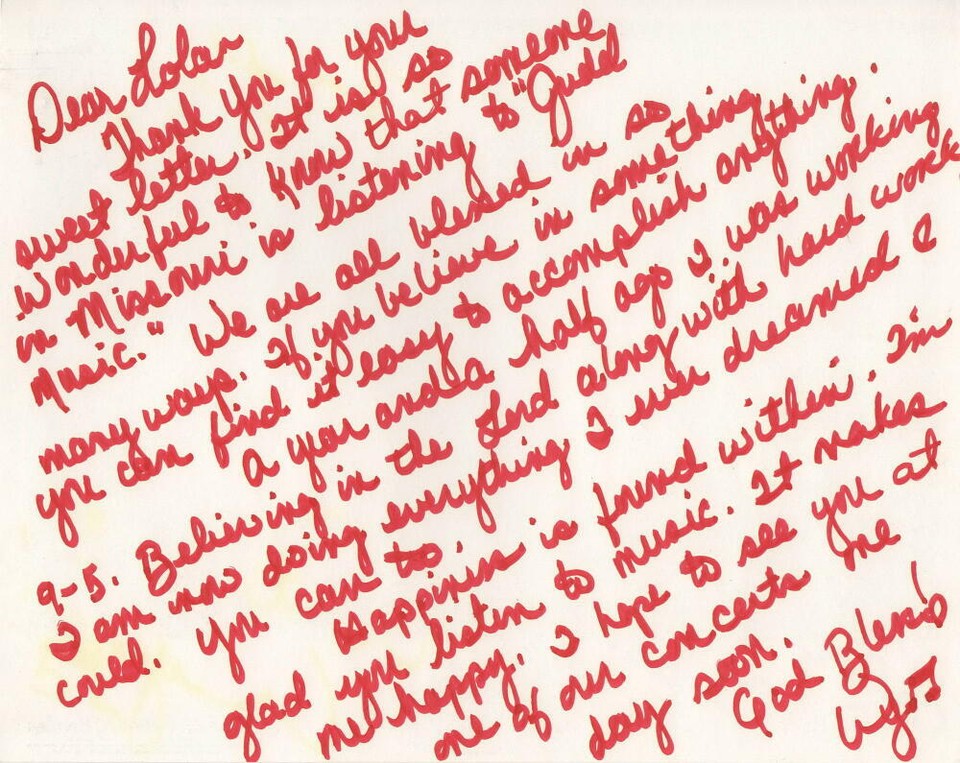 Dear Lolar
Thank you for your
sweet letter. It is so
wonderful to know that someone
in Missouri is listening to "Judd
Music." We are all blessed in so
many ways. If you believe in something,
you can find it easy to accomplish anything.
A year and a half ago I was working
9-5. Believing in the Lord along with hard work
I am now doing everything I ever dreamed I
could. You can to.
Happiness is found within. I'm
glad you listen to music. It makes
me happy. I hope to see you at
one of our concerts one
day soon.
God Bless!
Wy